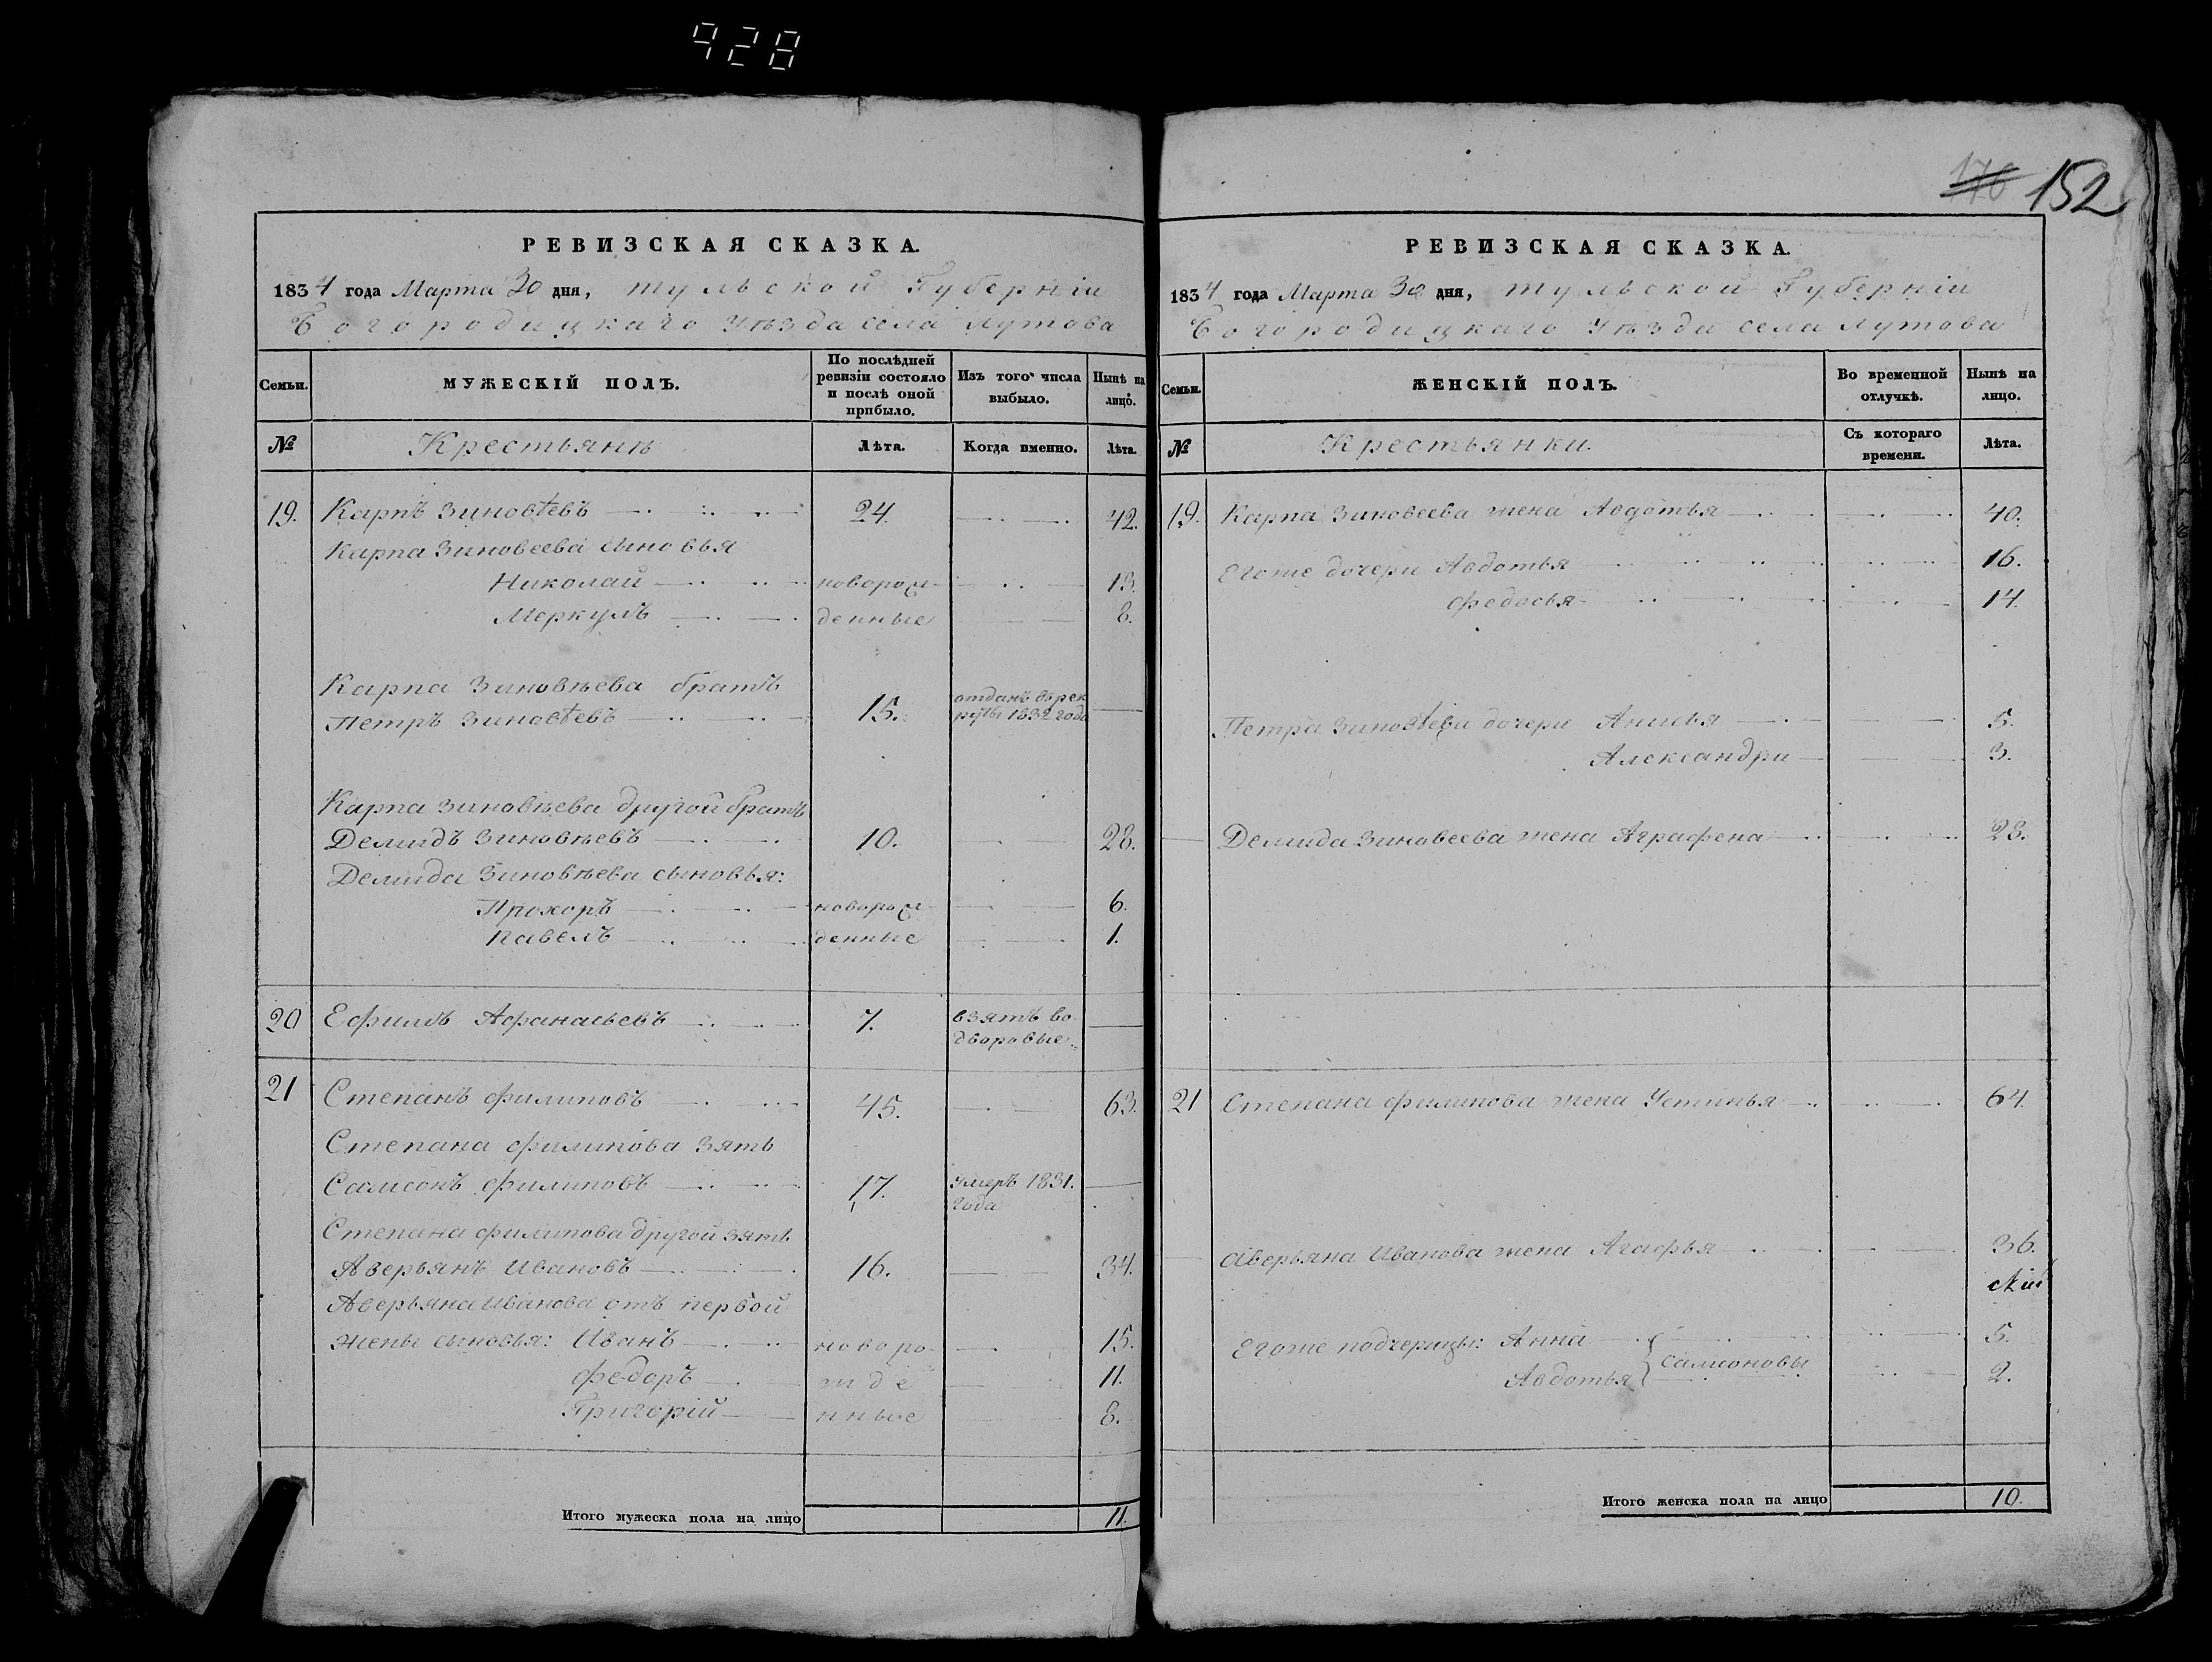 928
176 152
РЕВИЗСКАЯ СКАЗКА.
1834 года Марта 30 дня, тульской Губерніи
Богородицкаго Уѣзда села лутова
Семьи. МУЖЕСКІЙ ПОЛЪ. По послѣдней ревизіи состояло и послѣ оной прибыло. Изъ того числа выбыло. Нынѣ на лицо.
№ Крестьянѣ Лѣта. Когда именно. Лѣта.
19. Карпъ Зиновѣевъ 24. 42.
Карпа Зиновеева сыновья
Николай новорож- 13.
Меркулъ денные 8.
Карпа Зиновѣева братъ
Петръ Зиновѣевъ 15. отданъ въ рек руты 1832 года
Карпа Зиновѣева другой братъ
Демидъ Зиновѣевъ 10. 28.
Демида Зиновѣева сыновья:
Прохоръ новорож- 6.
Павелъ денные 1.
20 Ефимъ Афанасьевъ 7. взятъ во дворовые
21 Степанъ филиповъ 45. 63.
Степана филипова зять
Самсонъ филиповъ 17. умеръ 1831. года
Степана филипова другой зять
Аверьянъ Ивановъ 16. 34.
Аверьяна Иванова отъ первой
жены сыновья: Иванъ новоро- 15.
федоръ жде 11.
Григорій нные 8.
Итого мужеска пола на лицо 11.
РЕВИЗСКАЯ СКАЗКА.
1834 года Марта 30 дня, тульской Губерніи
Богородицкаго Уѣзда села лутова
Семьи. ЖЕНСКІЙ ПОЛЪ. Во временной отлучкѣ. Нынѣ на лицо.
№ Крестьянки. Съ котораго времени. Лѣта.
19. Карпа Зиновеева жена Авдотья 40.
Егоже дочери Авдотья 16.
федосья 14.
Петра Зиновѣева дочери Анисья 5.
Александра 3.
Демида Зиновеева жена Аграфена 28.
21 Степана филипова жена Устинья 64.
Аверьяна Иванова жена Агафья 36.
Егоже подчерицы: Анна 5.
Авдотья Самсоновы 2.
Итого женска пола на лицо 10.